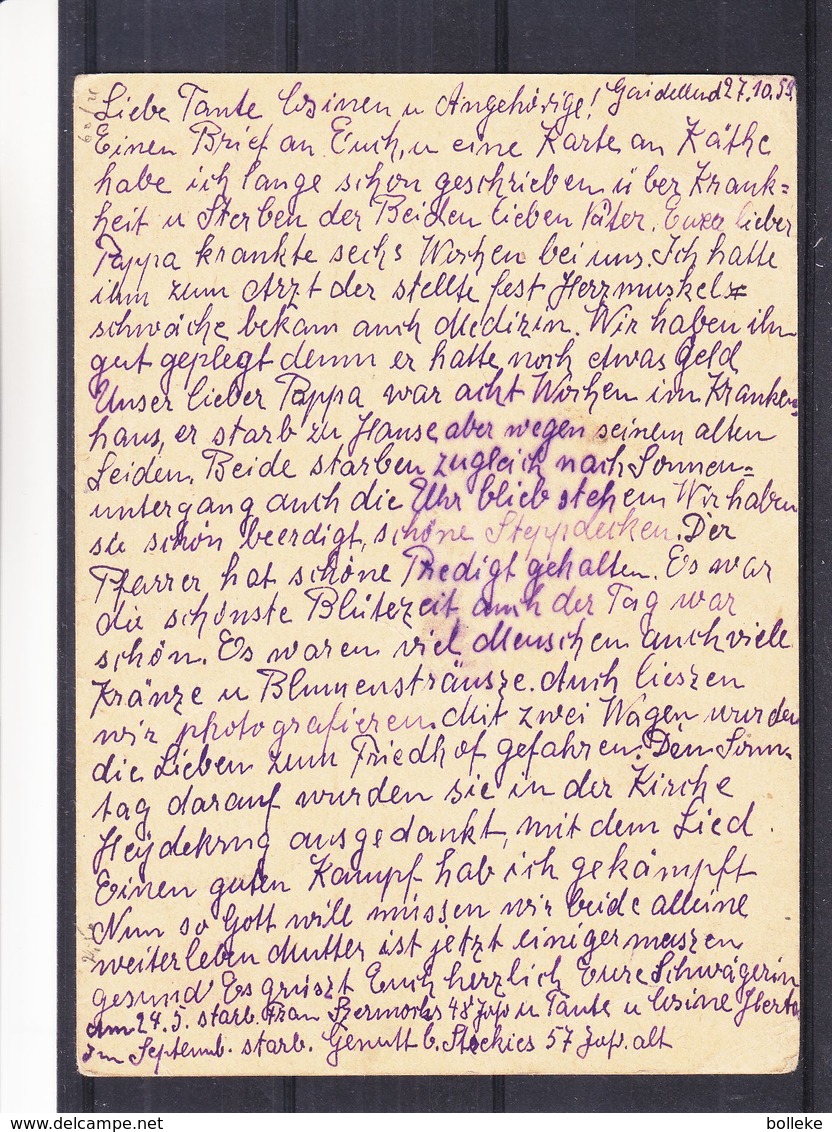 27.10.59
Liebe Tante Cosinen u Angehörige!
Einen Brief an Euch, u eine Karte an Käthe
habe ich lange schon geschrieben über Krank=
heit u Sterben der Beiden lieben Väter. Euer lieber
Pappa krankte sechs Wochen bei uns. Ich hatte
ihm zum Arzt der stellte fest Herzmuskel=
schwäche bekam auch Medizin. Wir haben ihn
gut geplegt denn er hatte noch etwas Geld
Unser lieber Pappa war acht Wochen im Kranken=
haus, er starb zu Hause aber wegen seinem alten
Leiden. Beide starben zugleich nach Sonnen=
untergang auch die Uhr blieb stehen Wir haben
sie schön beerdigt, schöne Steppdecken. Der
Pfarrer hat schöne Predigt gehalten. Es war
die schönste Blütezeit auch der Tag war
schön. Es waren viel Menschen auch viele
Kränze u Blumensträusze. Auch lieszen
wir photografieren. Mit zwei Wagen wurden
die Lieben zum Friedhof gefahren. Den Sonn-
tag darauf wurden sie in der Kirche
Heydekrug ausgedankt, mit dem Lied.
Einen guten Kampf hab ich gekämpft
Nun so Gott will müssen wir beide alleine
weiterleben Mutter ist jetzt einigermaszen
gesund Es grüszt Euch herzlich Eure Schwägerin
u Tante u Cosine Herta
Am 24.5. starb. Frau 48
Im Septemb. starb. b. Stockies 57 alt
bolleke